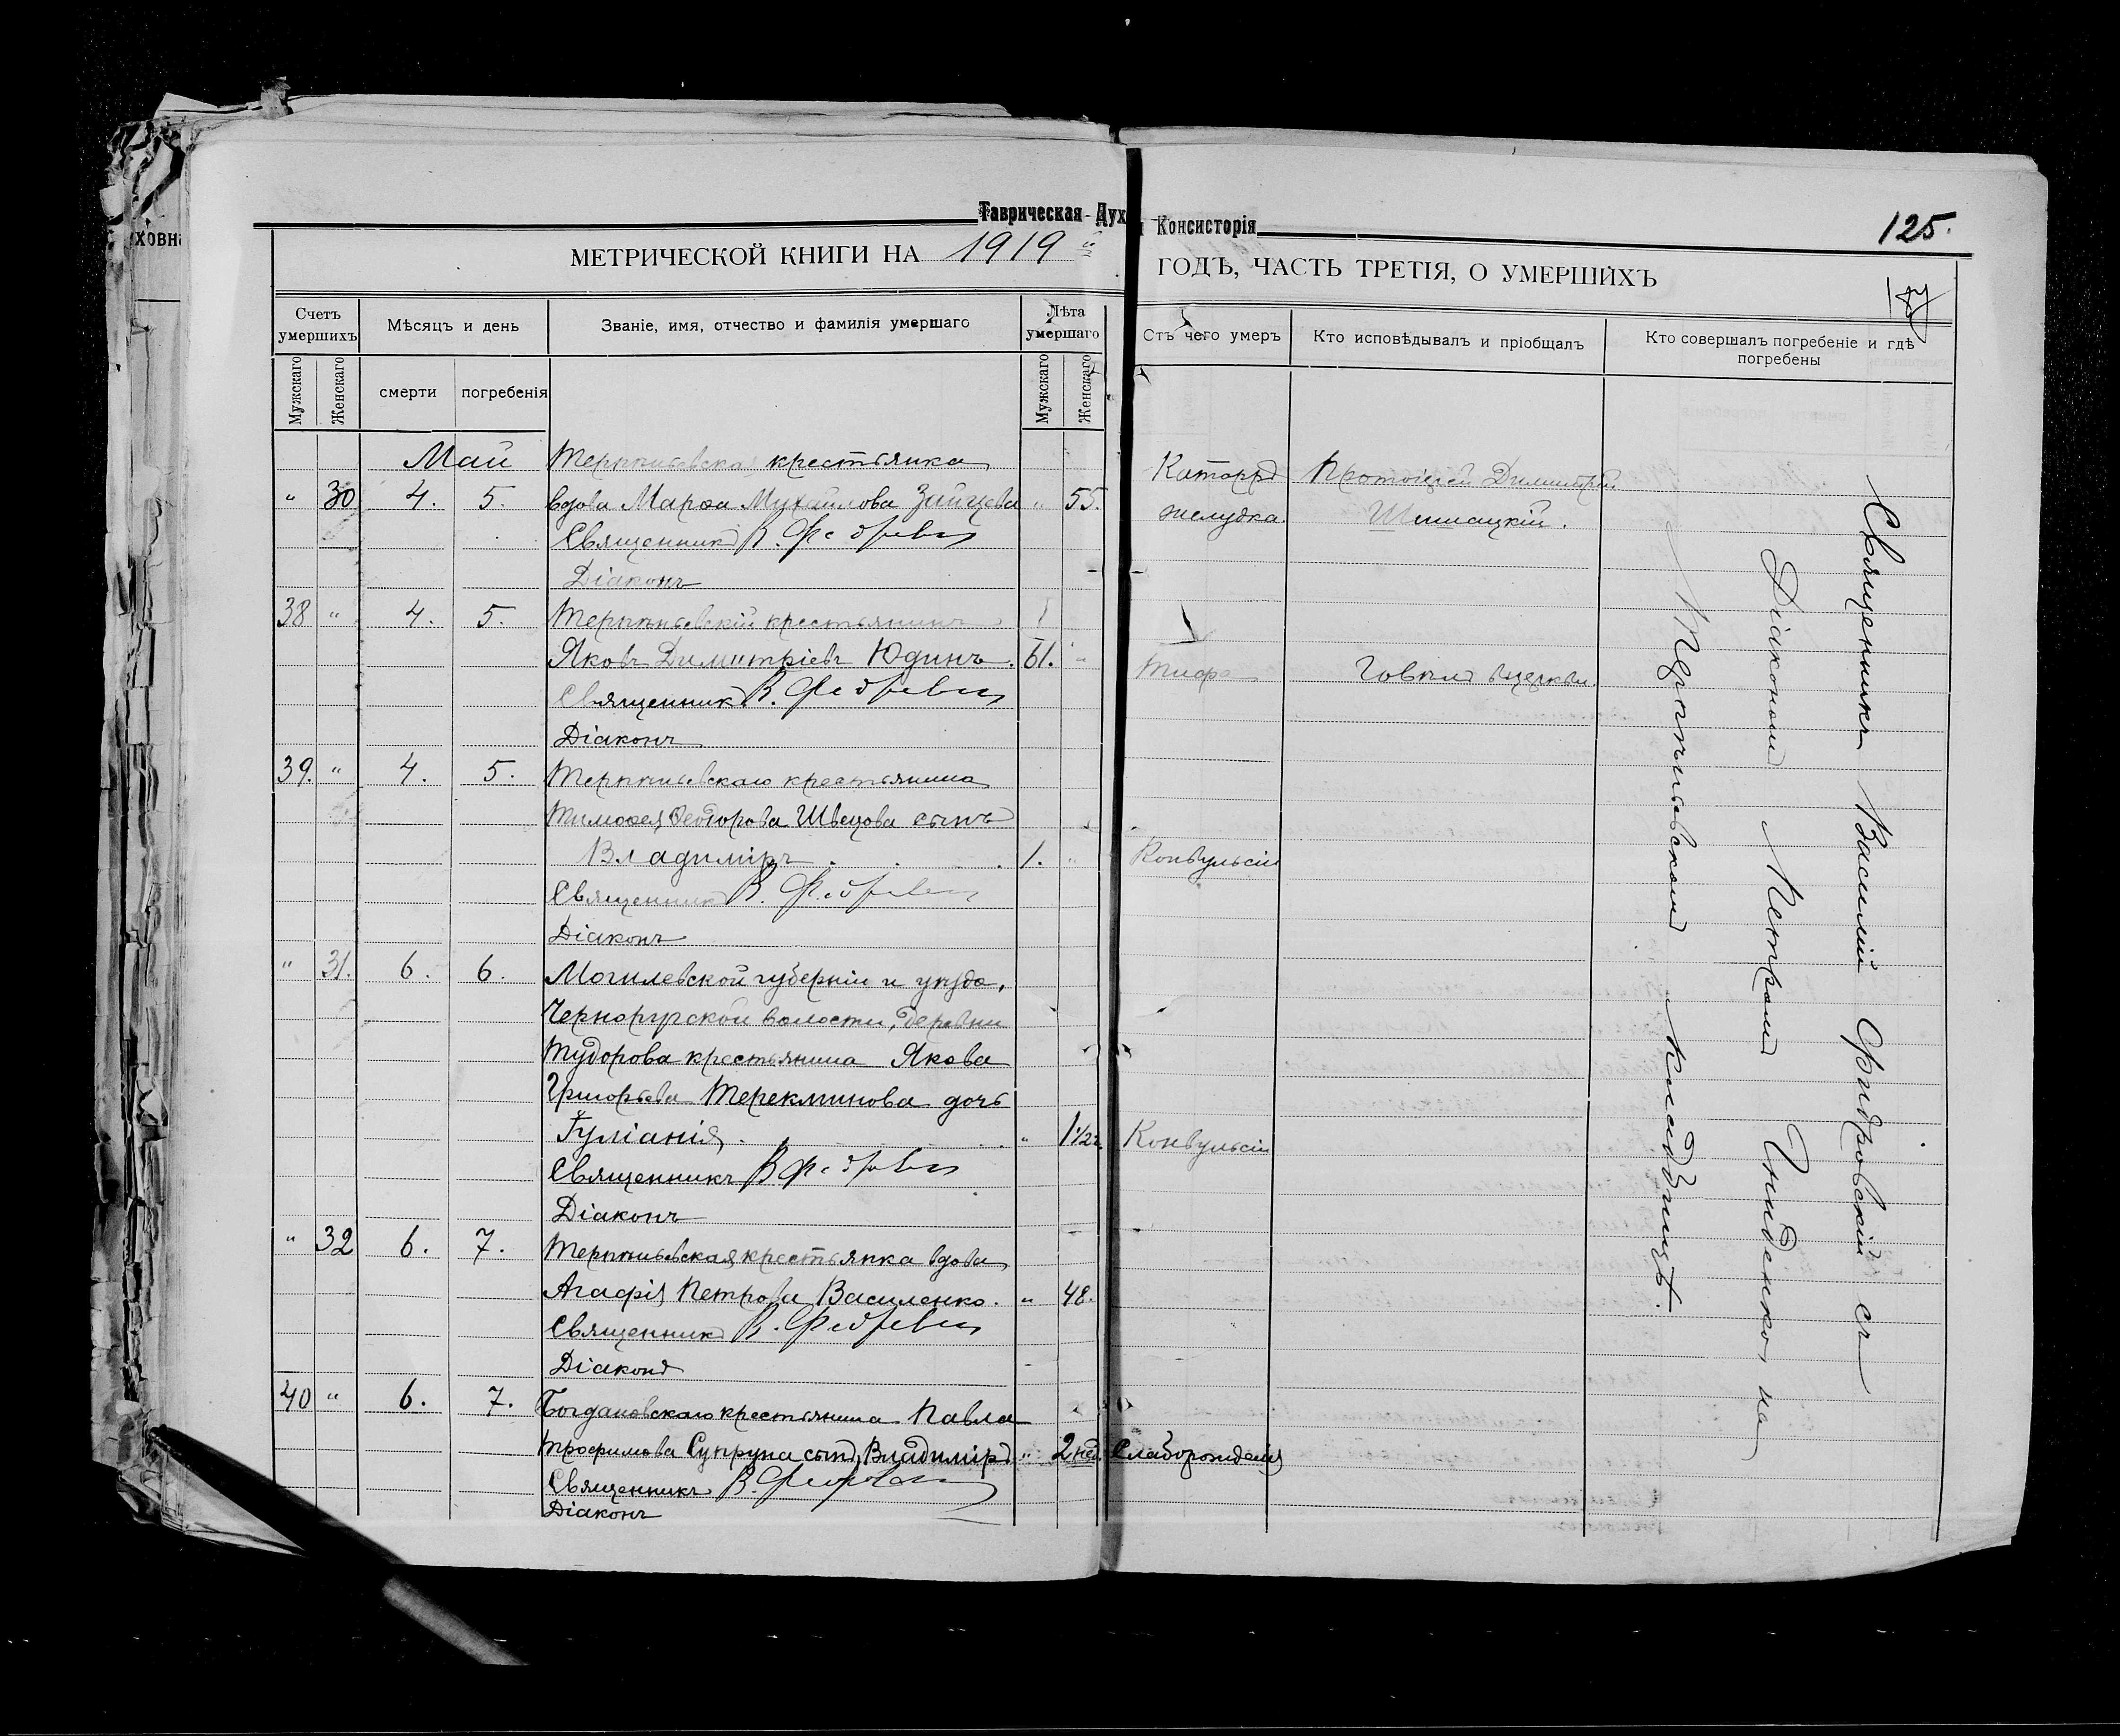 Таврическая Дух
я Консисторія
125.
МЕТРИЧЕСКОЙ КНИГИ НА 1919
ГОДѢ, ЧАСТЬ ТРЕТІЯ, О УМЕРШИХЪ
Счетъ умершихъ
Мѣсяцъ и день
Званіе, имя, отчество и фамилія умершаго
Лѣта умершаго
Отъ чего умеръ
Кто исповѣдывалъ и пріобщалъ
Кто совершалъ погребеніе и гдѣ погребены
Мужскаго
Женскаго
смерти
погребенія
Мужскаго
Женскаго
Май Терпѣньевская крестьянка
" 30 4. 5. вдова Марѳа Михайлова Зайцева " 55.
Катарръ желудка.
Протоіерей Димитрій
Священникъ В.
Діаконъ
38 " 4. 5. Терпѣньевскій крестьянинъ
Яковъ Димитріевъ Юдинъ. 61. "
Тифа
Говѣлъ въ церкви.
Священникъ В.
Діаконъ
39. " 4. 5. Терпѣньевскаго крестьянина
Тимоѳея Ѳеодорова Швецова сынъ
Владиміръ . . . 1. " Конвульсіи
Священникъ В.
Діаконъ
" 31. 6. 6. Могилевской губерніи и уѣзда,
Чернорусской волости, деревни
Тудорова крестьянина Якова
Григорьева Терекминова дочь
Іуліанія . " 1½ г. Конвульсіи
Священникъ В
Діаконъ
" 32 6. 7. Терпѣньевская крестьянка вдова
Агафія Петрова Василенко. " 48.
Священникъ В.
Діаконъ
40 " 6. 7. Богдановскаго крестьянина Павла
Трофимова Супруна сынъ Владиміръ " 2 нед. Слаборожденія
Священникъ В.
Діаконъ
Священникъ Василій съ
Діакономъ Петромъ Гниденко, на
кладбищѣ.